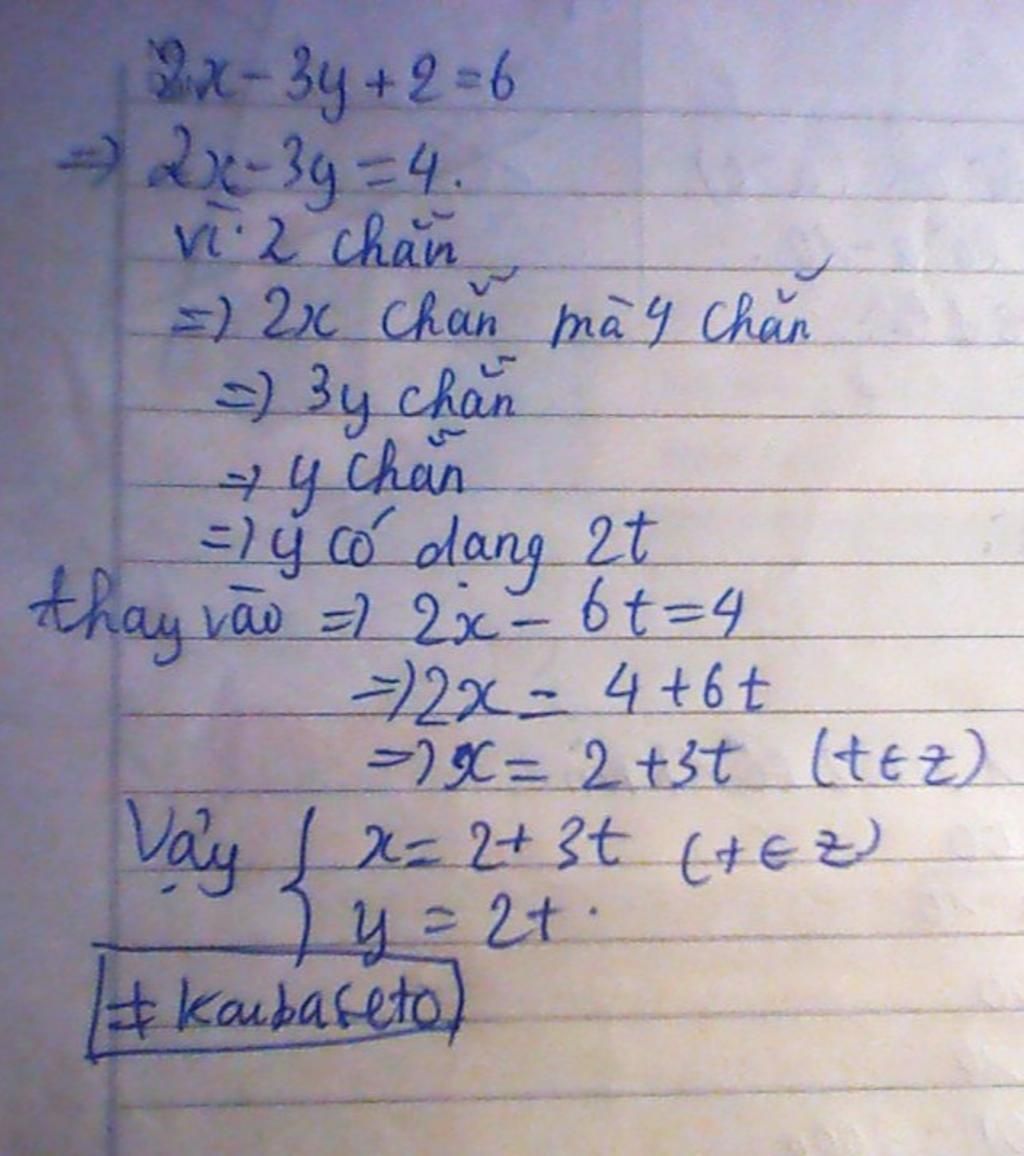 2x - 3y + 2 = 6
=> 2x - 3y = 4.
vì 2 chẵn
=> 2x chẵn mà 4 chẵn
=> 3y chẵn
=> y chẵn
=> y có dạng 2t
thay vào => 2x - 6t = 4
=> 2x = 4 + 6t
=> x = 2 + 3t (t ∈ z)
Vậy { x = 2 + 3t (t ∈ z)
y = 2t.
# Kaibaseto